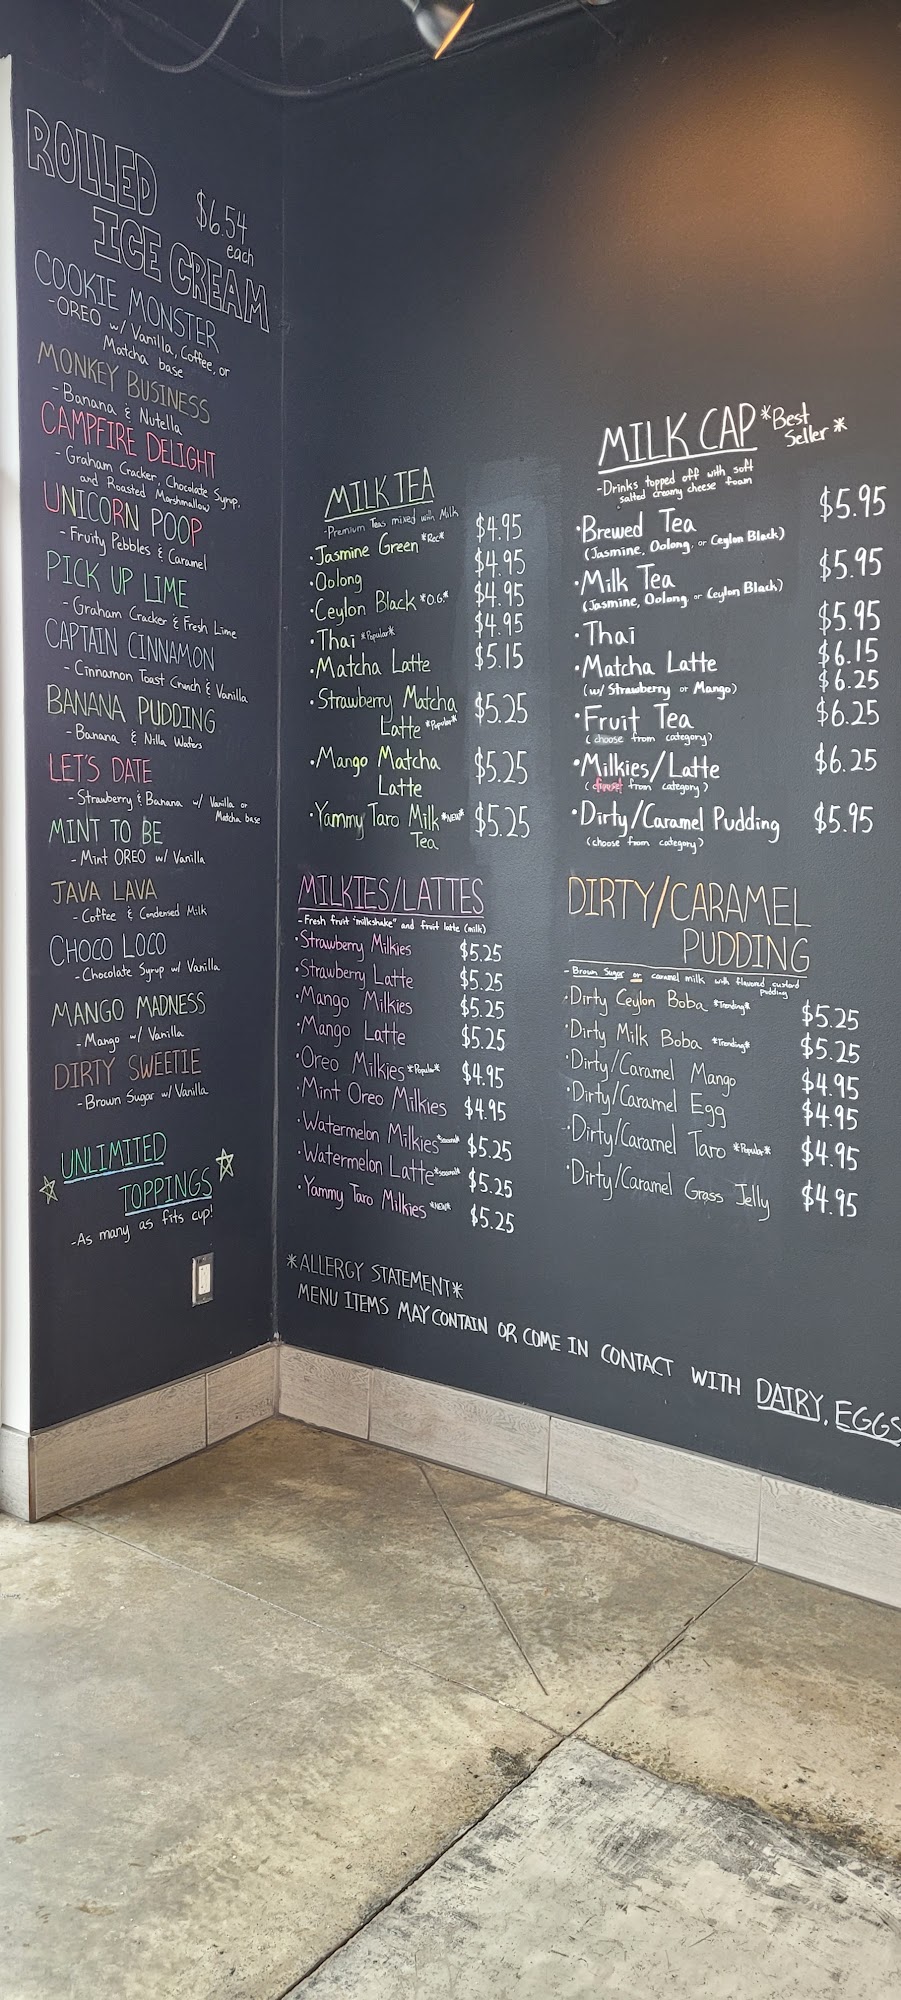 ROLLED
ICE CREAM
$6.54
each
COOKIE MONSTER
-OREO w/ Vanilla, Coffee, or
Matcha base
MONKEY BUSINESS
- Banana & Nutella
CAMPFIRE DELIGHT
- Graham Cracker, Chocolate Syrup,
and Roasted Marshmallow
UNICORN POOP
- Fruity Pebbles & Caramel
PICK UP LIME
- Graham Cracker & Fresh Lime
CAPTAIN CINNAMON
- Cinnamon Toast Crunch & Vanilla
BANANA PUDDING
- Banana & Nilla Wafers
LET'S DATE
- Strawberry & Banana w/ Vanilla or
Matcha base
MINT TO BE
- Mint OREO w/ Vanilla
JAVA LAVA
- Coffee & Condensed Milk
CHOCO LOCO
- Chocolate Syrup w/ Vanilla
MANGO MADNESS
- Mango w/ Vanilla
DIRTY SWEETIE
- Brown Sugar w/ Vanilla
UNLIMITED
TOPPINGS
-As many as fits cup!
MILK TEA
-Premium Teas mixed with Milk
·Jasmine Green *Rec* $4.95
·Oolong $4.95
·Ceylon Black *O.G.* $4.95
·Thai *Popular* $4.95
·Matcha Latte $5.15
·Strawberry Matcha
Latte *Popular* $5.25
·Mango Matcha
Latte $5.25
·Yammy Taro Milk *NEW* $5.25
Tea
MILKIES/LATTES
- Fresh fruit "milkshake" and fruit latte (milk)
·Strawberry Milkies $5.25
·Strawberry Latte $5.25
·Mango Milkies $5.25
·Mango Latte $5.25
·Oreo Milkies *Popular* $4.95
·Mint Oreo Milkies $4.95
·Watermelon Milkies *seasonal* $5.25
·Watermelon Latte *seasonal* $5.25
·Yammy Taro Milkies *NEW* $5.25
MILK CAP *Best
Seller*
-Drinks topped off with soft
salted creamy cheese foam
·Brewed Tea $5.95
(Jasmine, Oolong, or Ceylon Black)
·Milk Tea $5.95
(Jasmine, Oolong, or Ceylon Black)
·Thai $5.95
·Matcha Latte $6.15
(w/ Strawberry or Mango) $6.25
·Fruit Tea $6.25
(choose from category)
·Milkies/Latte $6.25
(choose from category)
·Dirty/Caramel Pudding $5.95
(choose from category)
DIRTY/CARAMEL
PUDDING
- Brown Sugar or caramel milk with flavored custard
pudding
·Dirty Ceylon Boba *Trending* $5.25
·Dirty Milk Boba *Trending* $5.25
·Dirty/Caramel Mango $4.95
·Dirty/Caramel Egg $4.95
·Dirty/Caramel Taro *Popular* $4.95
·Dirty/Caramel Grass Jelly $4.95
*ALLERGY STATEMENT*
MENU ITEMS MAY CONTAIN OR COME IN CONTACT WITH DAIRY, EGGS